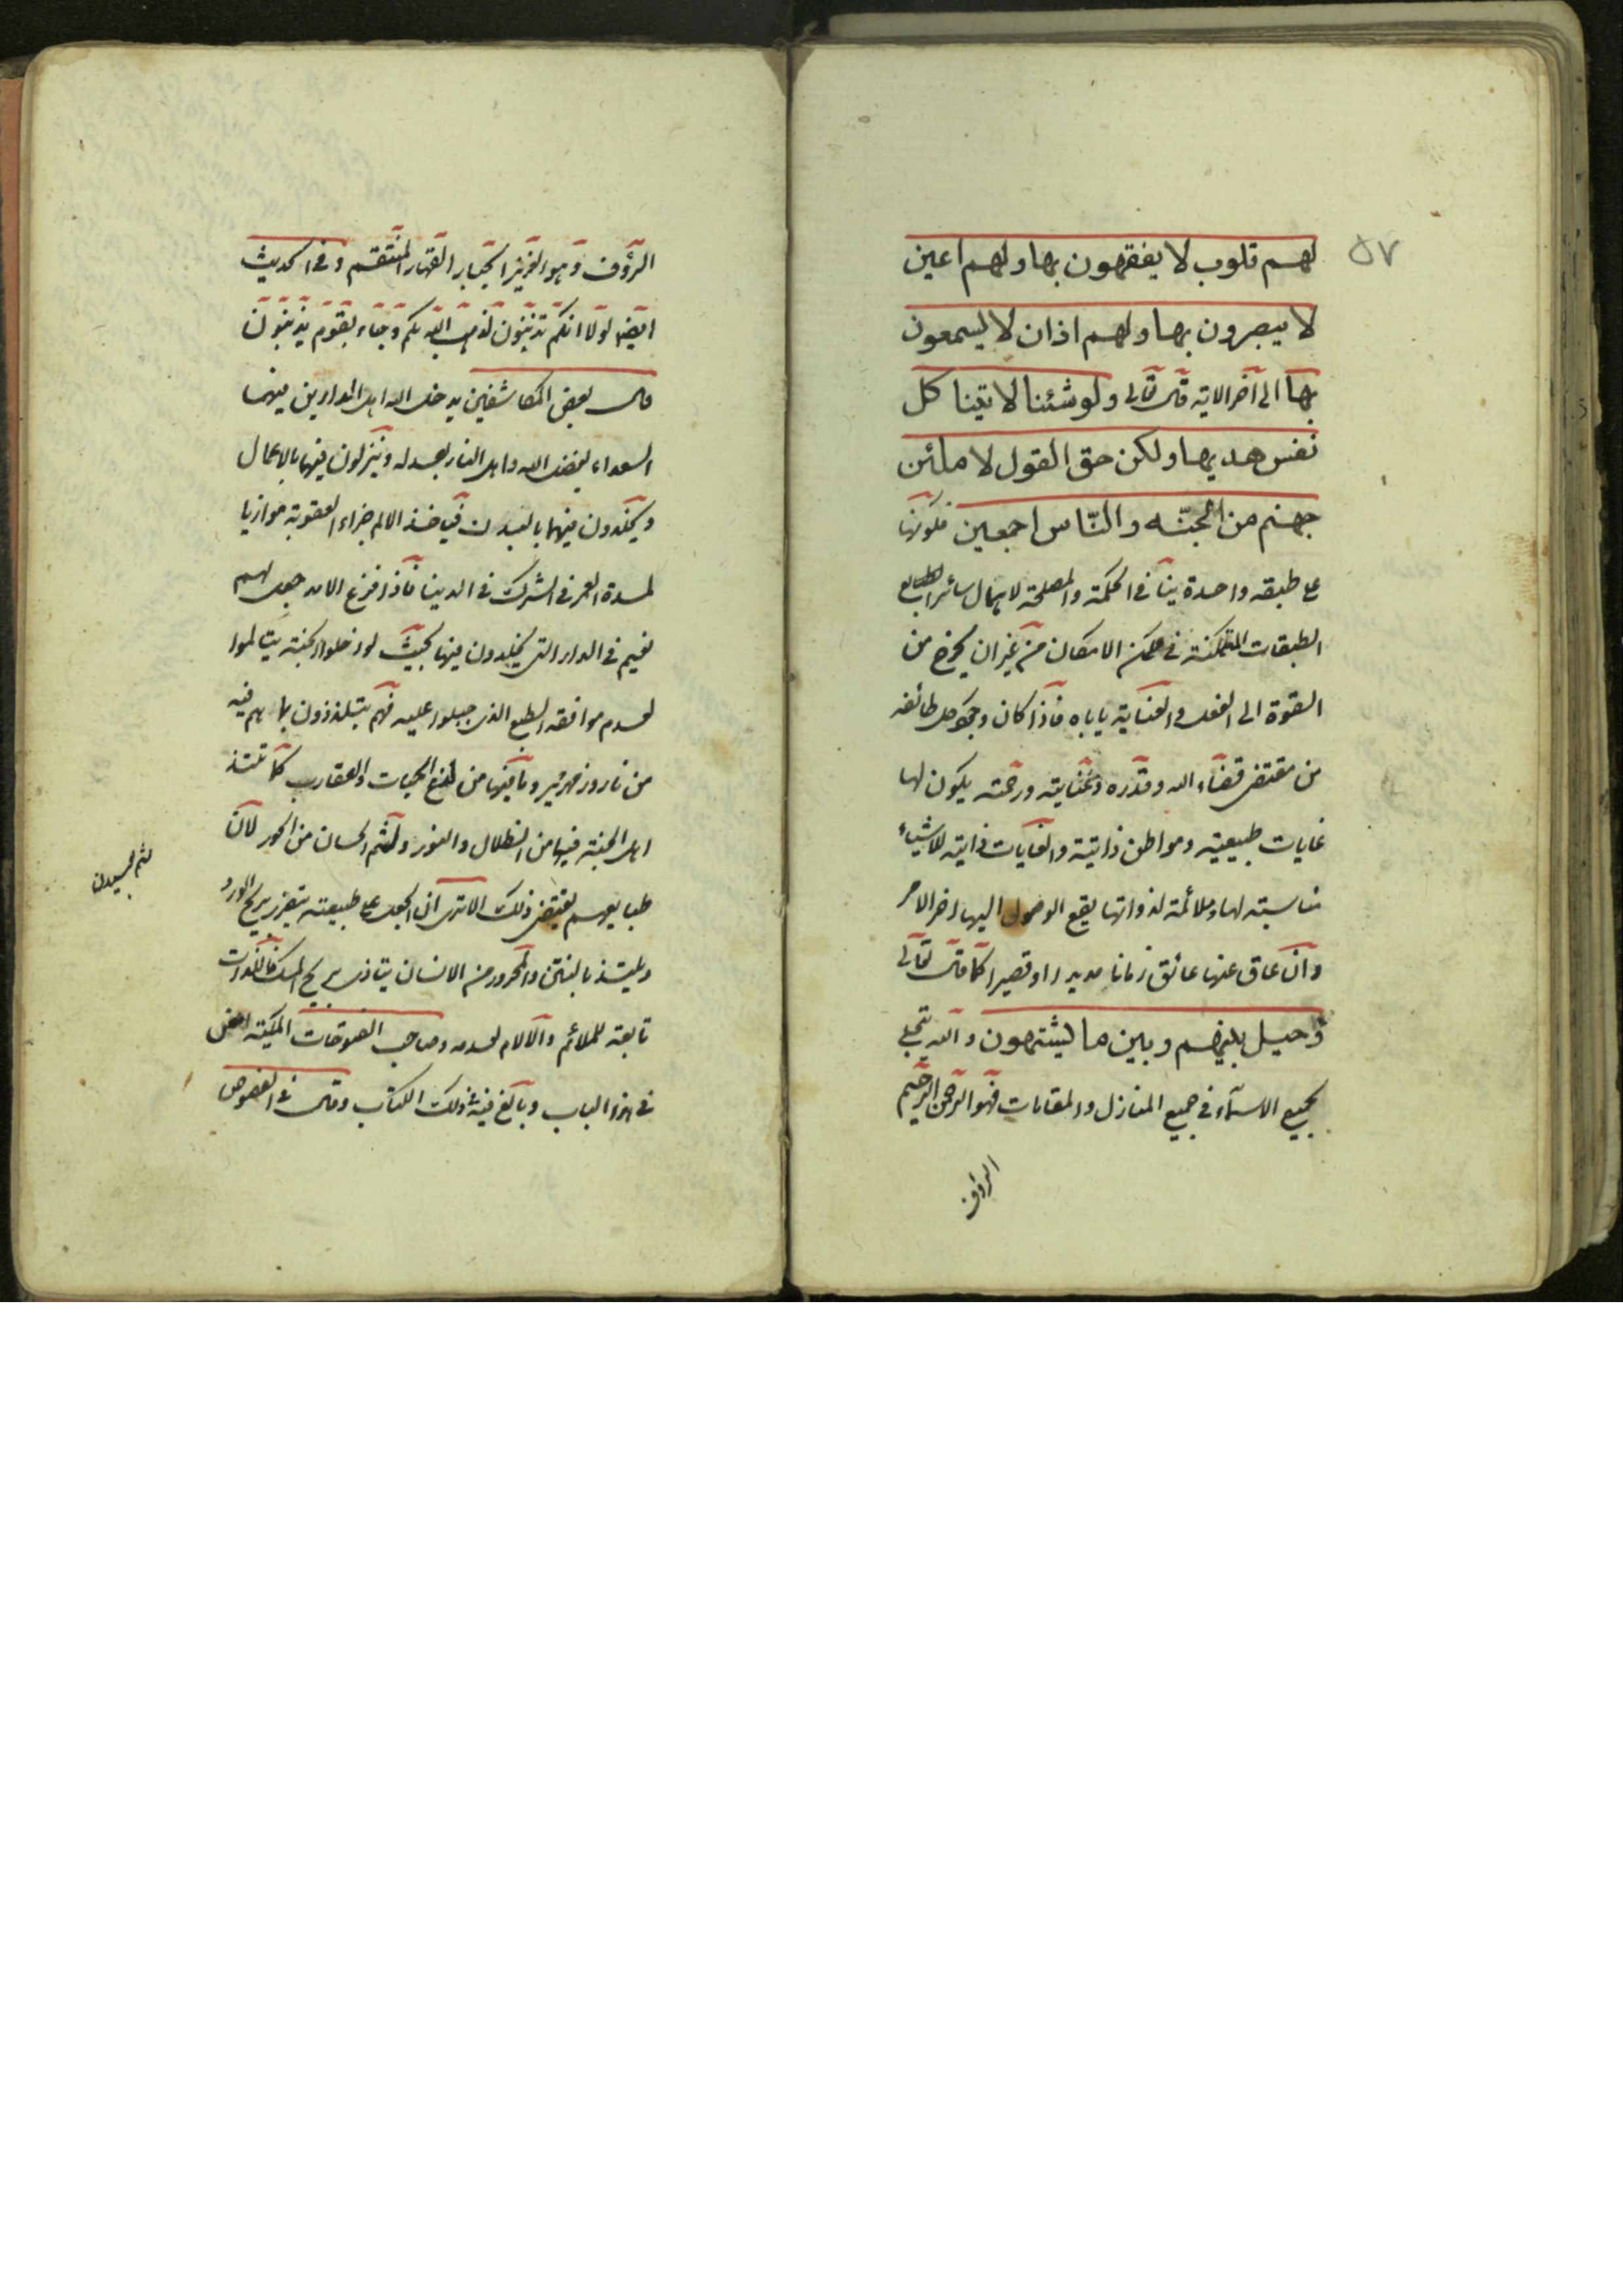 ٥٧
لهم قلوب لا يفقهون بها ولهم اعين
لا يبصرون بها ولهم اذان لا يسمعون
بها الى آخر الاية قال تعالى ولو شئنا لاتينا كل
نفس هديها ولكن حق القول لاملئن
جهنم من الجنّه والنّاس اجمعين فكونها
على طبقه واحدة ينافى الحكمة والمصلحة لاهمال سائر
الطبقات المتمكنة فى الامكان من غير ان يخرج من
القوة الى الفعل والعناية ياباه فاذا كان وجود كل طائفه
من مقتضى قضاء الله وقدره وعنايته ورحمته يكون لها
غايات طبيعية ومواطن ذاتية والغايات ذاتية للاشياء
مناسبته لها وملائمة لذواتها يقع الوصول اليها اخر الامر
وان عاق عنها عائق زمانا مديدا او قصيرا كما قال تعالى
وحيل بينهم وبين ما يشتهون والله يتجلى
بجميع الاسماء فى جميع المنازل والمقامات فهو الرحمن الرحيم
الرؤف
الرؤف وهو العزيز الجبار القهار المنتقم وفى الحديث
ايضا لولا انكم تذنبون لذهب الله بكم وجاء بقوم يذنبون
قال بعض المكاشفين يدخل الله اهل الدارين فيهما
السعداء بفضل الله واهل النار بعدله وينزلون فيهما بالاعمال
ويخلدون فيهما بالنيات فياخذ الالم جزاء العقوبة موازيا
لمدة العمر فى الشرك فى الدنيا فاذا فرغ الامد جعل لهم
نعيم فى الدار التى يخلدون فيها بحيث لو دخلوا الجنة يتالموا
لعدم موافقه الطبع الذى جبلوا عليه فهم يتلذذون بما هم فيه
من نار وزمهرير وما فيها من لدغ الحيات والعقارب كما تلتذ
اهل الجنة فيها من الظلال والنور ولثم الحسان من الحور لان
طبايعهم يقتضى ذلك الا ترى ان الجعل على طبيعته يتضرر بريح الورد
ويلتذ بالنتن والمحرور من الانسان يتاذى بريح المسك فاللذات
تابعة للملائم والآلام لعدمه وصاحب الفتوحات المكية
فى هذا الباب وبالغ فيه فى ذلك الكتاب وقال فى الفصوص